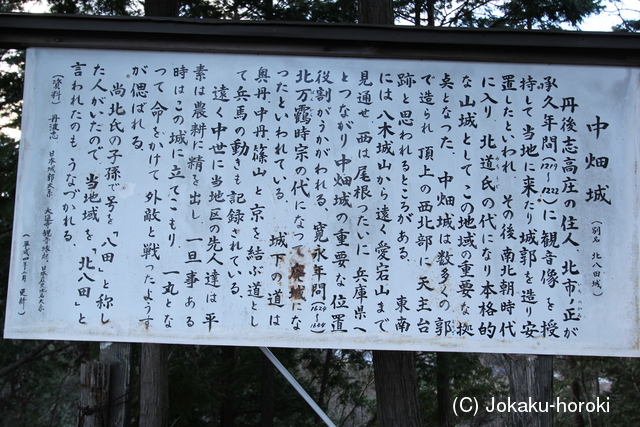 中畑城
(別名 北八田城)
丹後志高庄の住人、北市ノ正が
承久年間(1219〜1222)に観音像を授
持して当地に来たり城郭を造り安
置したといわれ、その後南北朝時代
に入り、北道氏の代になり本格的
な山城としてこの地域の重要な拠
点となった。中畑城は数多くの郭
で造られ、頂上の西北部に天主台
跡と思われるところがある。東南
には八木城山から遠く愛宕山まで
見通せ、西は尾根づたいに兵庫県へ
とつながり中畑城の重要な位置
役割がうかがわれる。寛永年間(1624〜1644)
北万靄時宗の代になって廃城にな
ったといわれている。城下の道は
奥丹、中丹、篠山と京を結ぶ道とし
て兵馬の動きも記録されている。
遠く中世に当地区の先人達は平
素は農耕に精を出し、一旦事ある
時はこの城に立てこもり、一丸とな
って命をかけて外敵と戦ったようす
が偲ばれる。
尚北氏の子孫で号を「八田」と称し
た人がいたので、当地域を「北八田」と
言われたのも、うなづかれる。
(資料) 丹波志 日本城郭大系
(平成 年 月 更新)
(C) Jokaku-horoki